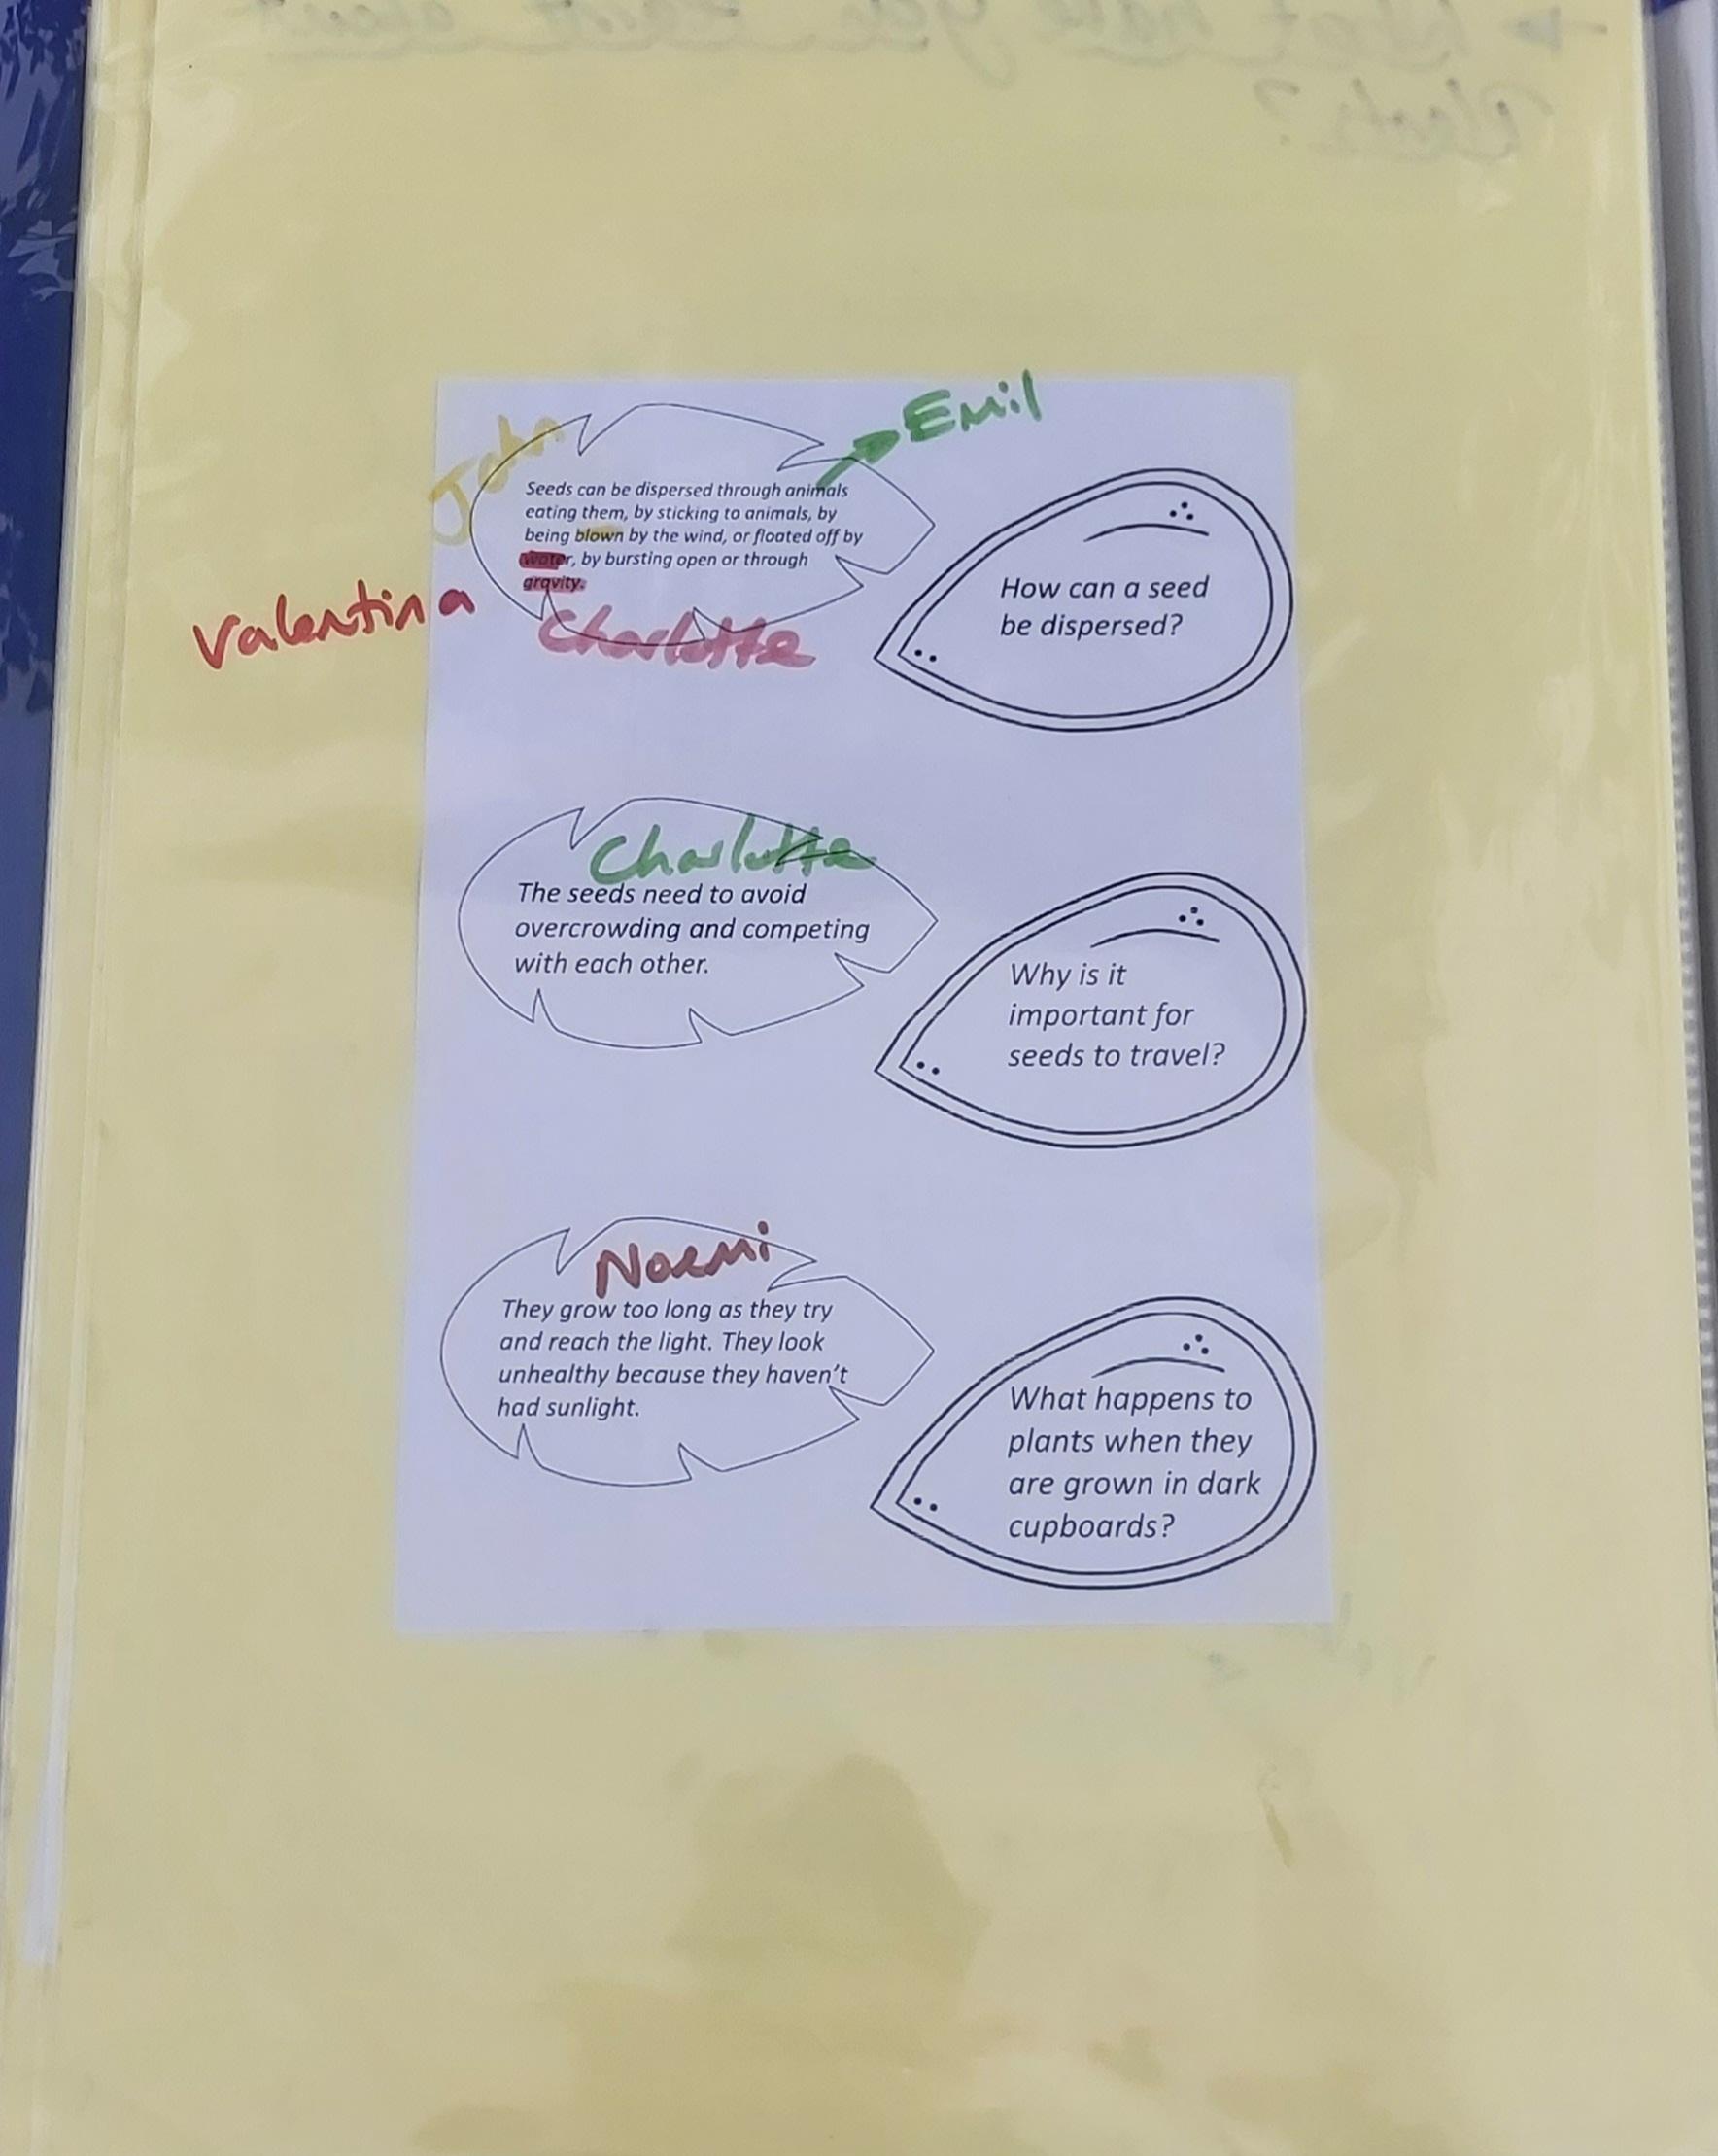 What have you learnt about
Plants?
John
Emil
Seeds can be dispersed through animals
eating them, by sticking to animals, by
being blown by the wind, or floated off by
water, by bursting open or through
gravity.
Valentina
Charlotte
How can a seed
be dispersed?
Charlotte
The seeds need to avoid
overcrowding and competing
with each other.
Why is it
important for
seeds to travel?
Noemi
They grow too long as they try
and reach the light. They look
unhealthy because they haven't
had sunlight.
What happens to
plants when they
are grown in dark
cupboards?